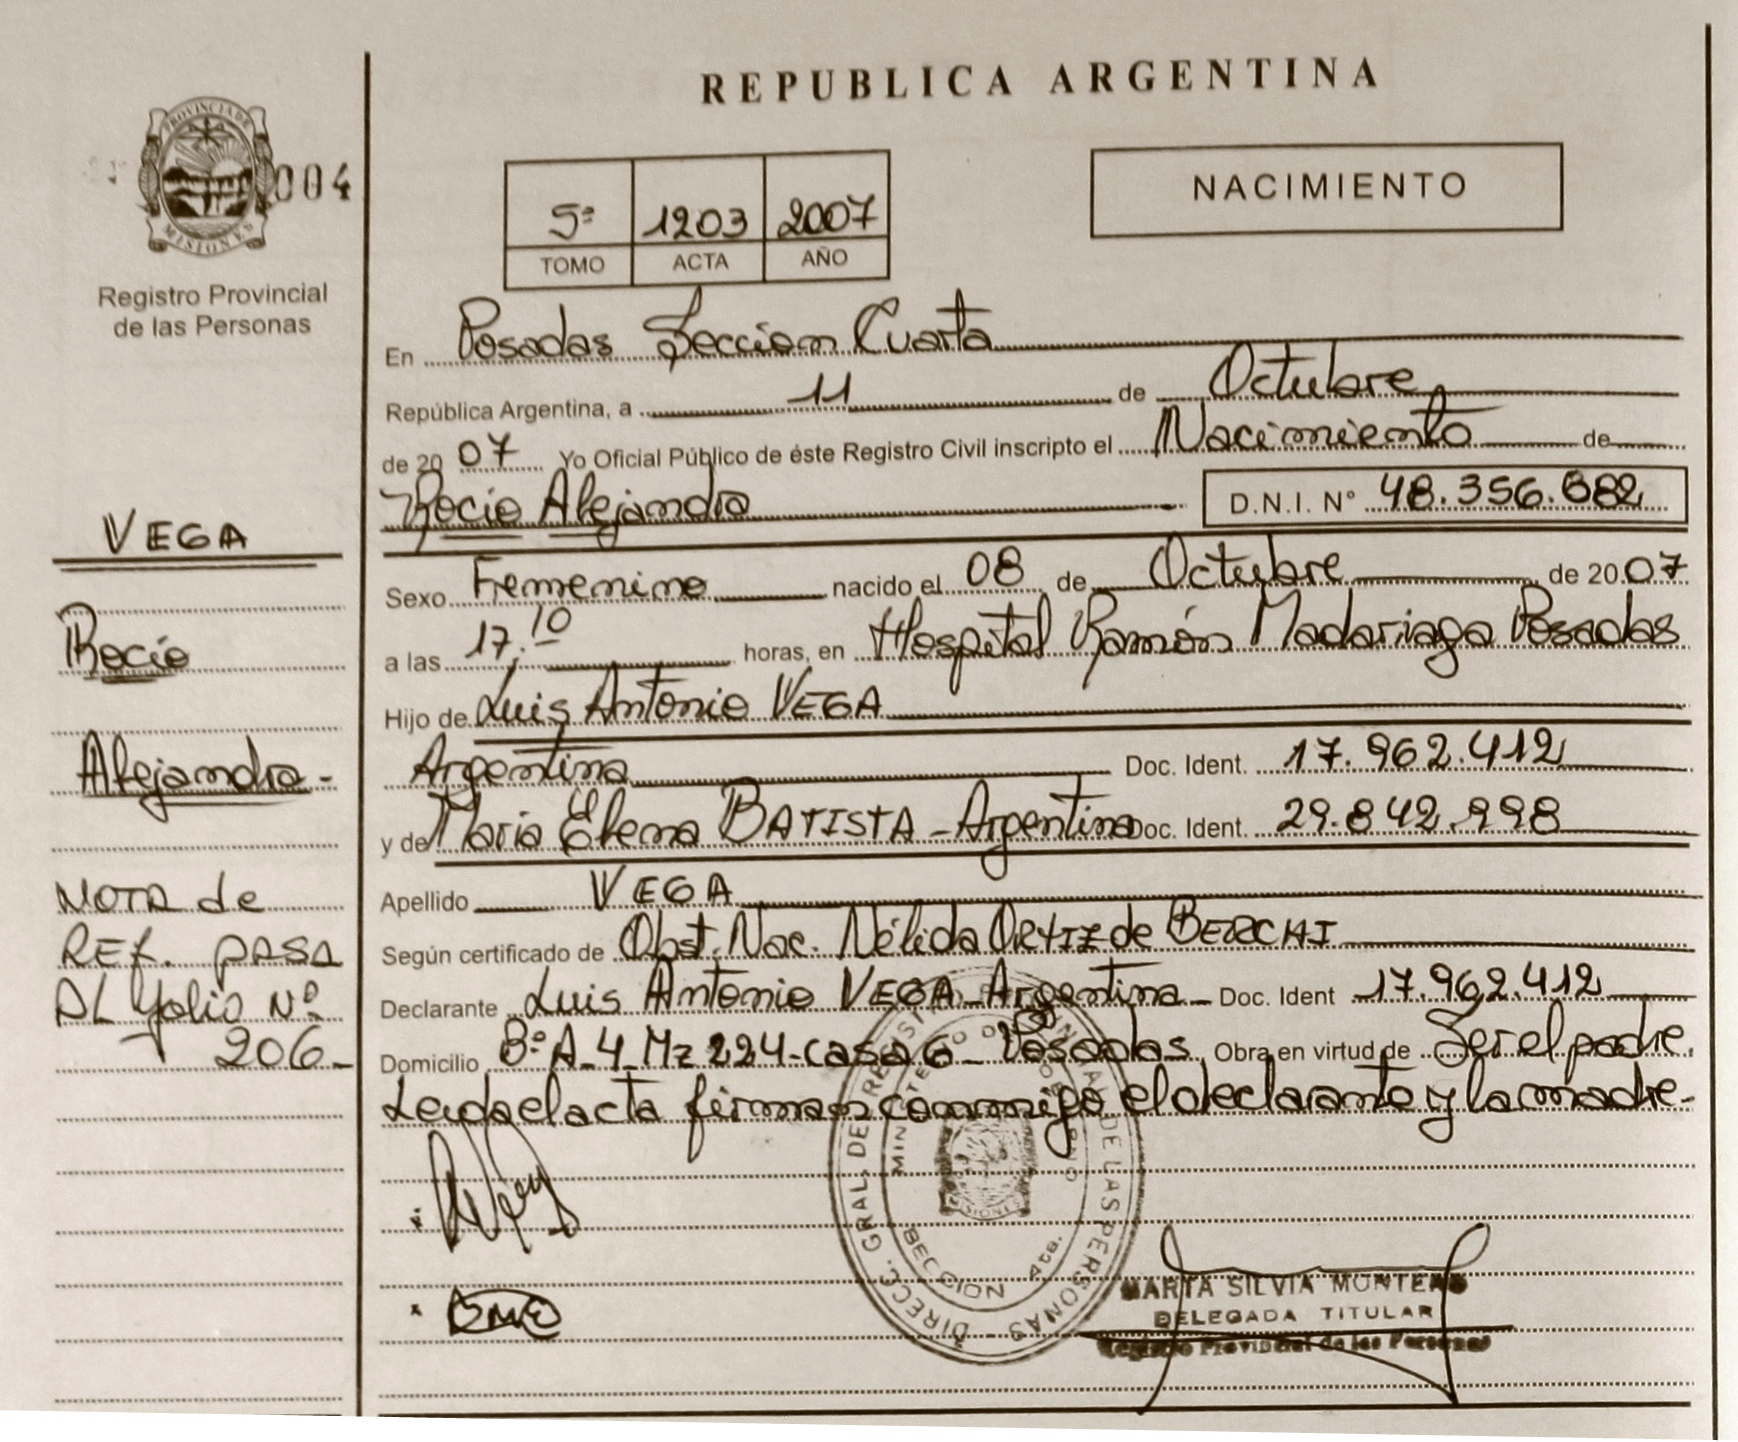 REPUBLICA ARGENTINA
PROVINCIA DE
MISIONES
004
Registro Provincial
de las Personas
5ª 1203 2007
TOMO ACTA AÑO
NACIMIENTO
En Posadas Seccion Cuarta
República Argentina, a 11 de Octubre
de 2007 Yo Oficial Público de éste Registro Civil inscripto el Nacimiento de
Rocio Alejandra D.N.I. Nº 48.356.682
Sexo Femenino nacido el 08 de Octubre de 2007
a las 17:10 horas, en Hospital Ramón Madariaga Posadas
Hijo de Luis Antonio VEGA
Argentina Doc. Ident. 17.962.412
y de Maria Elena BATISTA - Argentina Doc. Ident. 29.842.998
Apellido VEGA
Según certificado de Obst. Nac. Nélida ORTIZ de BERCHI
Declarante Luis Antonio VEGA - Argentina - Doc. Ident 17.962.412
Domicilio Bº A-4 Mz 224 - casa 6 - Posadas Obra en virtud de Ser el padre.
Leida el acta firman conmigo el declarante y la madre-
VEGA
Rocio
Alejandra -
NOTA de
REF. PASA
AL folio Nº
206-
DIRECC. GRAL. DE REGISTRO DE LAS PERSONAS
SECCION 4ta.
MARTA SILVIA MONTERO
DELEGADA TITULAR
Registro Provincial de las Personas